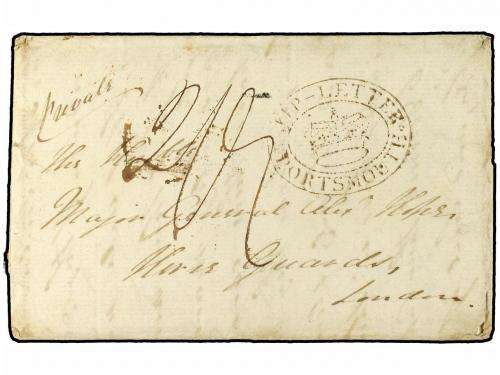 Private
SHIP-LETTER
PORTSMOUTH
The Hble
Major General Alexr Hope
Horse Guards,
London.